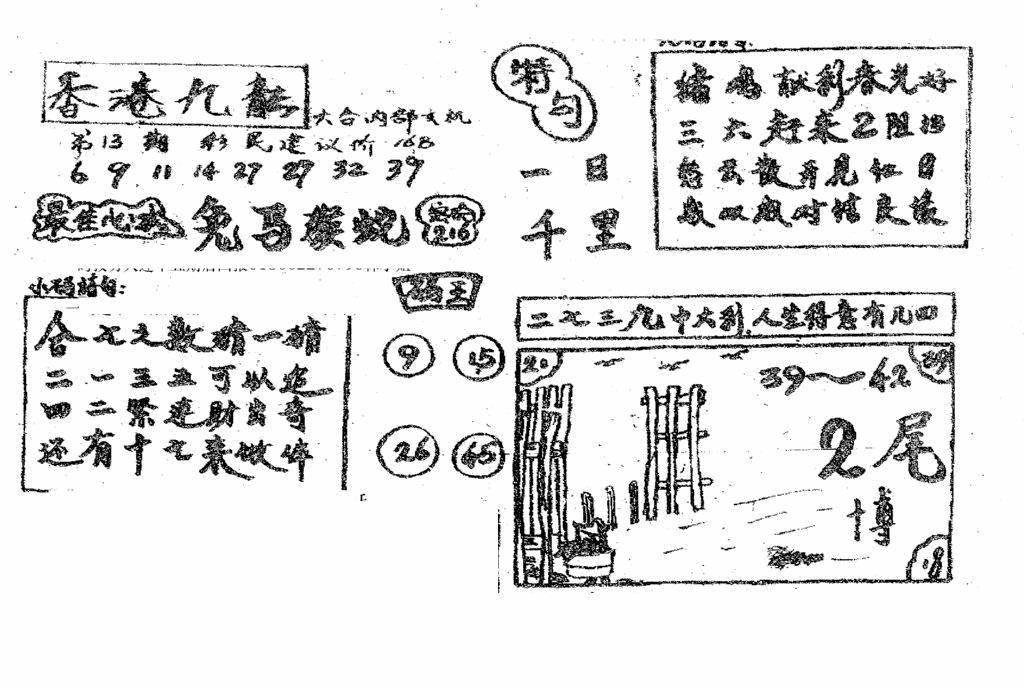 香港九龍
六合内部玄机
第13期 彩民建议价168
6 9 11 14 27 29 32 39
最佳
兔马猴蛇
216
特
句
一日
千里
猪鸡献利春光好
三六赶来2阻18
云散开见红日
成双成对结良缘
小码猜句:
合七之数猜一猜
二一三五可以追
四二紧连财出奇
还有十七来做伴
码王
9 15
26 45
二七三九中大利,人生得意有几四
20
39
39~42
2尾
博
18